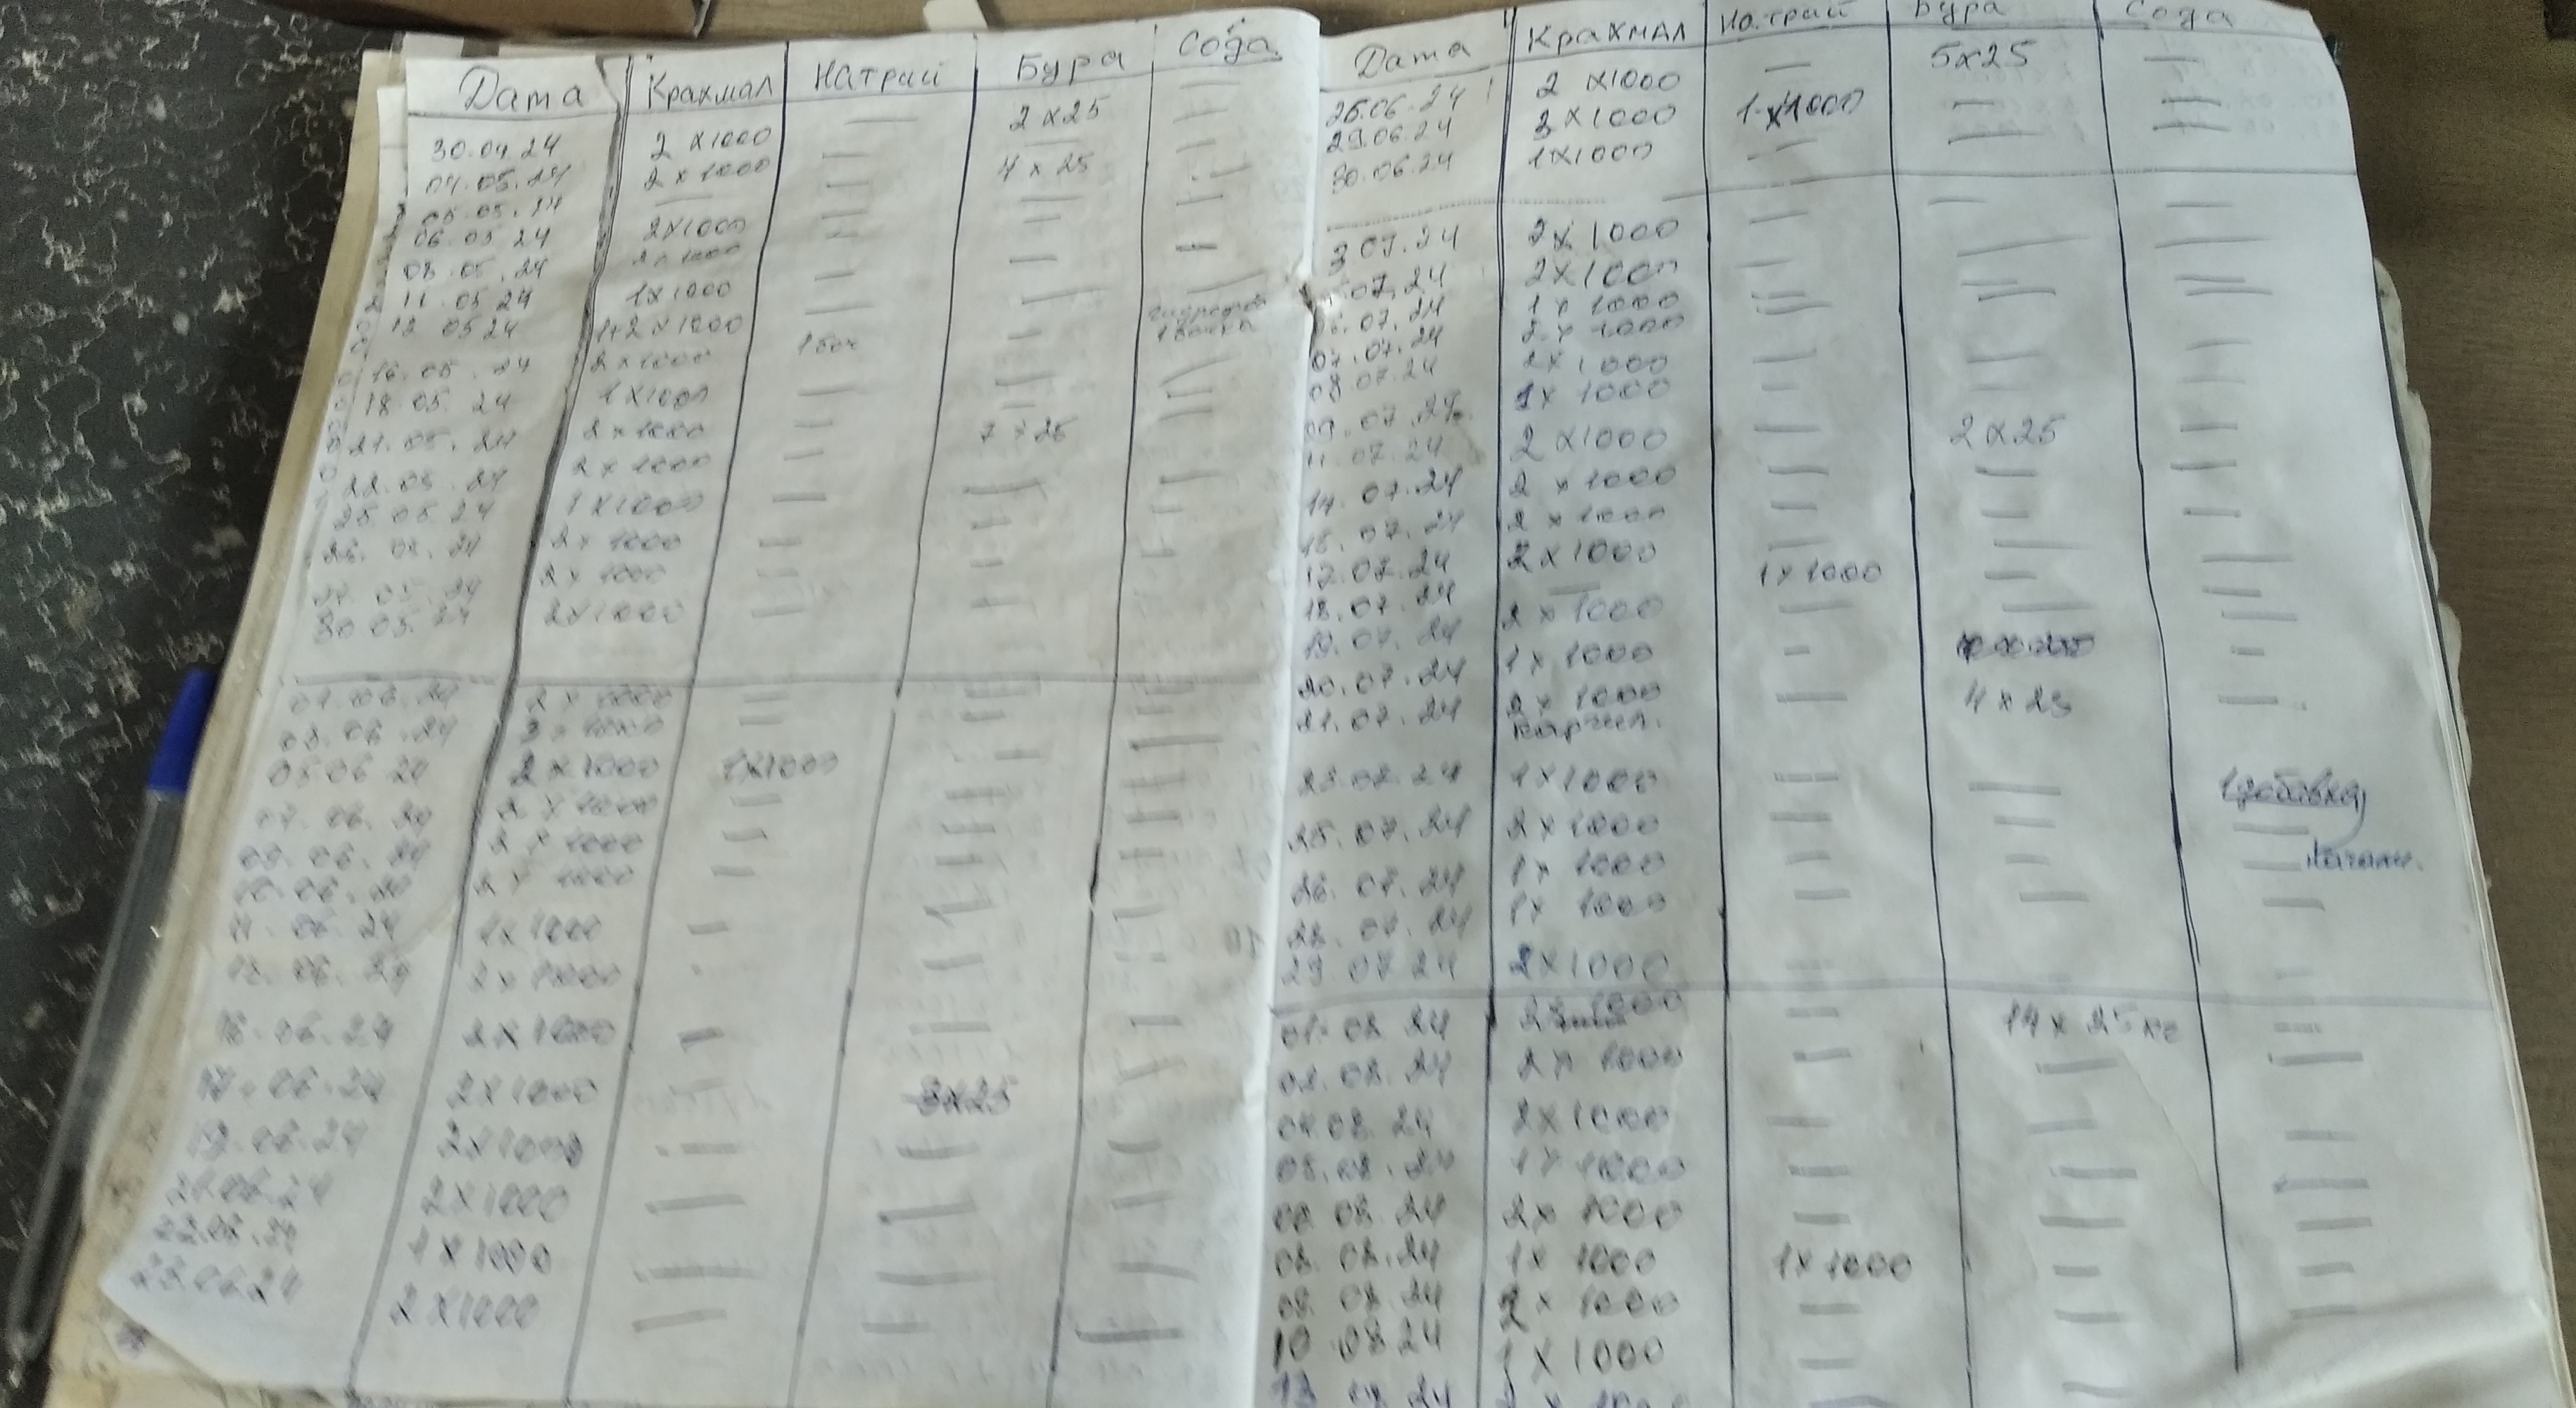 Дата Крахмал Натрий Бура Сода
30.04.24 2 x1000 — 2 x25 —
04.05.24 2 x 1000 — — —
05.05.24 — — 4 x 25 —
06.05 24 2x1000 — — —
08.05.24 2 x 1000 — — —
11.05 24 1x1000 — — —
12 05 24 1+2 x1000 — —
16.05.24 2x1000 1 боч — 1 бочка
18.05.24 1x1000 — — —
21.05.24 2x1000 — 7 x 25 —
22.05.24 2 x 1000 — — —
25.05.24 1x1000 — — —
26.05.24 2x 1000 — — —
27.05.24 2x 1000 — — —
30 05.24 2x1000 — — —
01.06.24 2 x 1000 — — —
03.06.24 3 x 1000 — — —
05 06 24 2x1000 1x1000 — —
07.06.24 2 x 1000 — — —
09.06.24 2 x 1000 — — —
10.06.24 2 x 1000 — — —
11.06.24 1x1000 — — —
2x1000 — — —
16.06.24 2x1000 — — —
17.06.24 2x1000 — 3x25 —
19.06.24 2x1000 — — —
21.06.24 2x1000 — — —
22.06.24 1x1000 — — —
23.06.24 2x1000 — — —
Дата Крахмал Натрий Бура Сода
26.06.24 2 x1000 — 5x25 —
29.06.24 3x1000 1x1000 — —
30.06.24 1x1000 — — —
3 07.24 2x1000 — — —
07.24 2x1000 — — —
06.07.24 1x1000 — — —
07.07.24 2x1000 — — —
08.07.24 2x1000 — — —
09.07.24 1x 1000 — — —
11.07.24 2x1000 — 2x25 —
14.07.24 2 x1000 — — —
16.07.24 2 x1000 — — —
17.07.24 2x1000 — — —
18.07.24 — 1x1000 — —
19.07.24 2x1000 — — —
20.07.24 1x1000 — —
21.07.24 2x1000 — 4x25 —
23.07.24 1x1000 — —
25.07.24 2x1000 — — —
26.07.24 1x 1000 — — —
28.07.24 1x 1000 — — —
29.07 24 2x1000 — — —
01.08 24 2x1000 — 14 x 25 кг —
02.08.24 2x 1000 — — —
04.08.24 2x1000 — — —
05.08.24 1x1000 — — —
06 08 24 2x 1000 — — —
08.08.24 1x 1000 1x1000 — —
09.08 24 2x 1000 — — —
10.08 24 1x1000 — — —
13 08 24 —